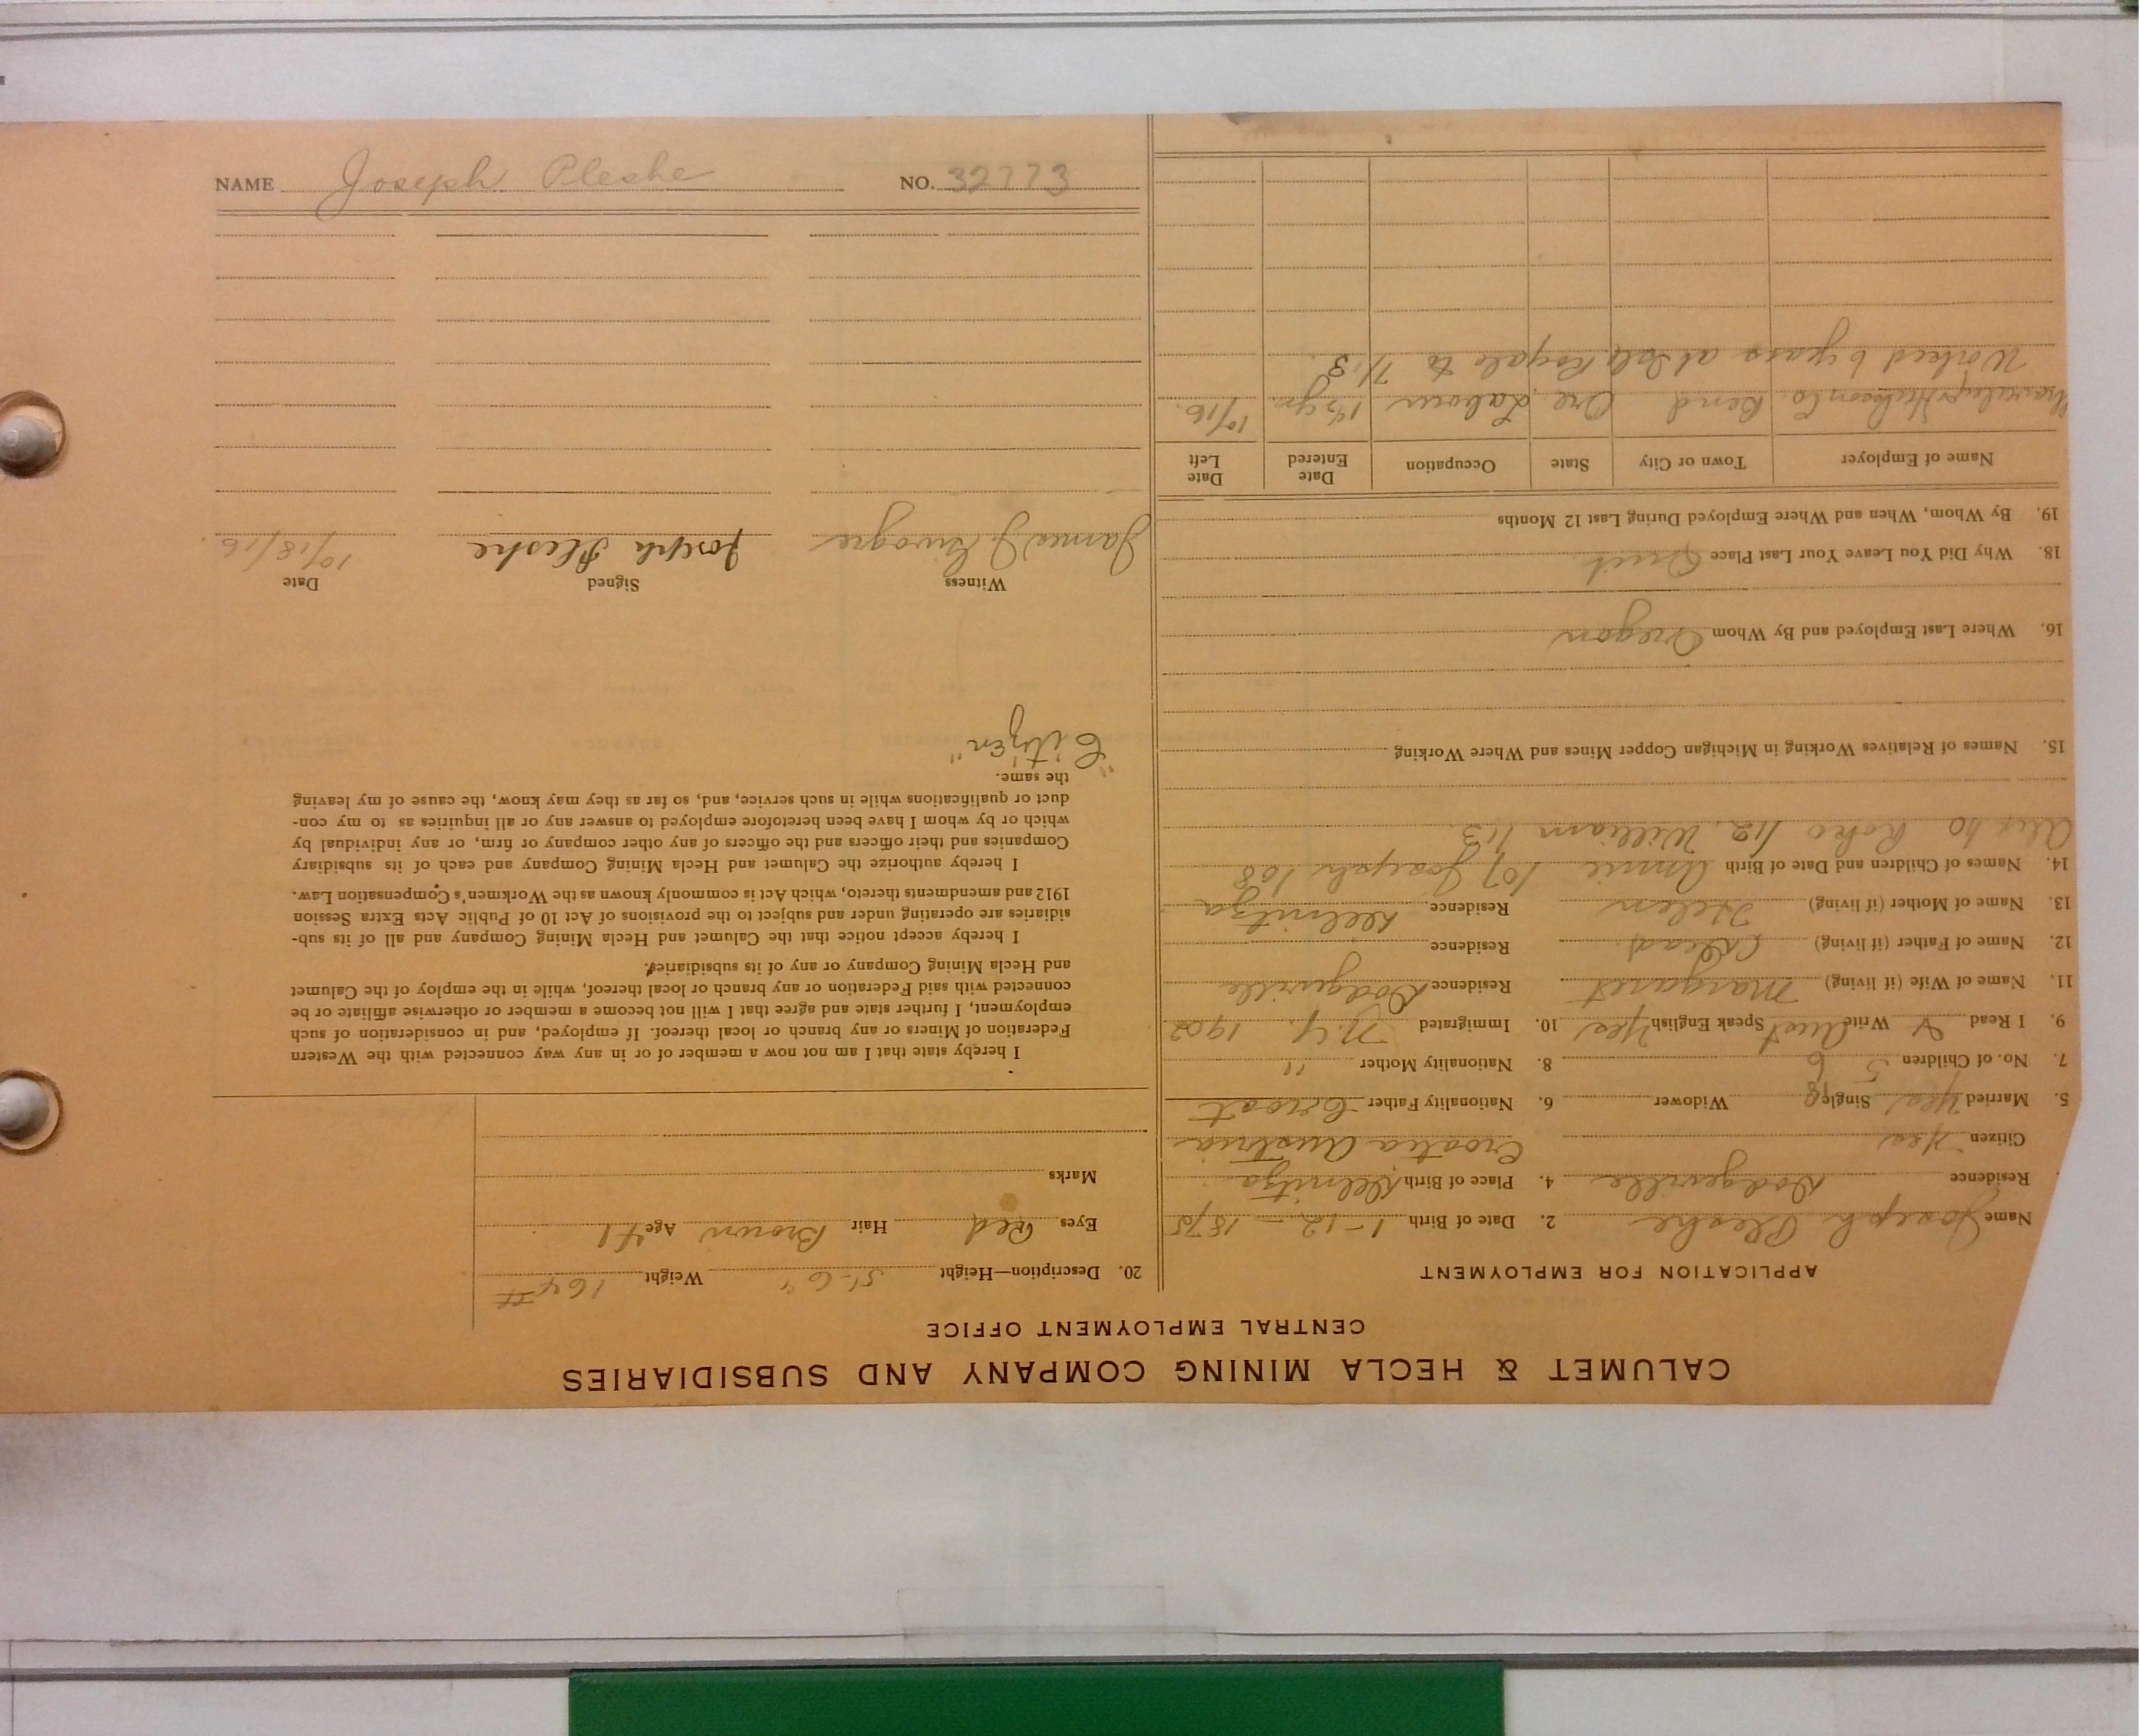 CALUMET & HECLA MINING COMPANY AND SUBSIDIARIES
CENTRAL EMPLOYMENT OFFICE
APPLICATION FOR EMPLOYMENT
Name Joseph Pleshe
2. Date of Birth 1-12-1875
Residence Dodgeville
4. Place of Birth Delnitza
Citizen Yes
Croatia Austria
5. Married Yes Single Widower
6. Nationality Father Croat
7. No. of Children 5 6
8. Nationality Mother "
9. I Read & Write Aust Speak English Yes
10. Immigrated N.Y. 1902
11. Name of Wife (if living) Margaret Residence Dodgeville
12. Name of Father (if living) Dead Residence
13. Name of Mother (if living) Helen Residence Delnitza
14. Names of Children and Date of Birth Annie 107 Joseph 108
110 Roko 112 William 113
15. Names of Relatives Working in Michigan Copper Mines and Where Working
16. Where Last Employed and By Whom Oregon
18. Why Did You Leave Your Last Place Quit
19. By Whom, When and Where Employed During Last 12 Months
Name of Employer Town or City State Occupation Date Entered Date Left
Hudson Co. Bend Ore Labour 1½ yr. 10/16.
Worked 6 years at Isle Royale to 7/13.
20. Description—Height 5'-6" Weight 164 #
Eyes Red Hair Brown Age 41
Marks
I hereby state that I am not now a member of or in any way connected with the Western
Federation of Miners or any branch or local thereof. If employed, and in consideration of such
employment, I further state and agree that I will not become a member or otherwise affiliate or be
connected with said Federation or any branch or local thereof, while in the employ of the Calumet
and Hecla Mining Company or any of its subsidiaries.
I hereby accept notice that the Calumet and Hecla Mining Company and all of its sub-
sidiaries are operating under and subject to the provisions of Act 10 of Public Acts Extra Session
1912 and amendments thereto, which Act is commonly known as the Workmen's Compensation Law.
I hereby authorize the Calumet and Hecla Mining Company and each of its subsidiary
Companies and their officers and the officers of any other company or firm, or any individual by
which or by whom I have been heretofore employed to answer any or all inquiries as to my con-
duct or qualifications while in such service, and, so far as they may know, the cause of my leaving
the same.
"Citizen"
Witness Signed Date
James J. Joseph Pleshe 10/18/16.
NAME Joseph Pleshe NO. 32773